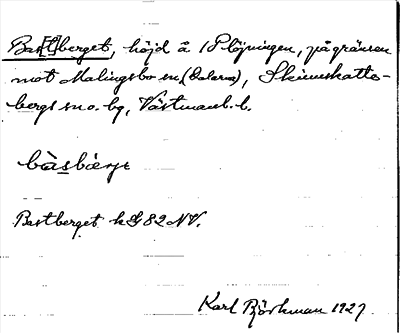 Bas[t]berget, höjd å Plöjningen, på gränsen
mot Malingsbo sn, (Dalarna), Skinnskatte-
bergs sn o. bg, Västmanl. l.
bàsbærjt
Bastberget k G 82 NV.
Karl Björkman 1927